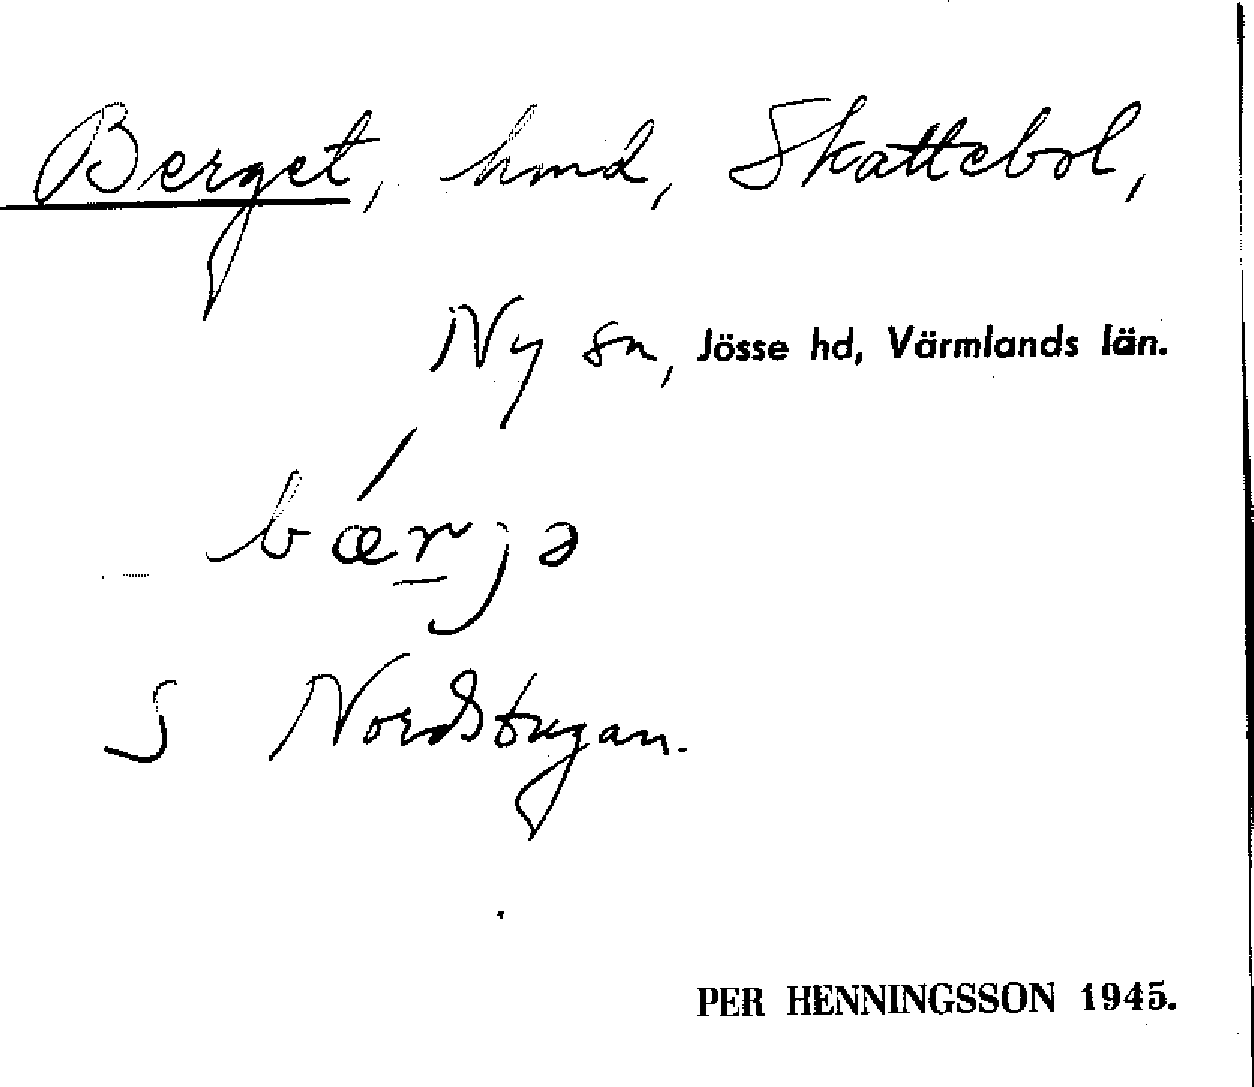 Berget, hmd, Skattebol,
Ny sn, Jösse hd, Värmlands län.
bǽr̲jə
S Nordstugan.
PER HENNINGSSON 1945.